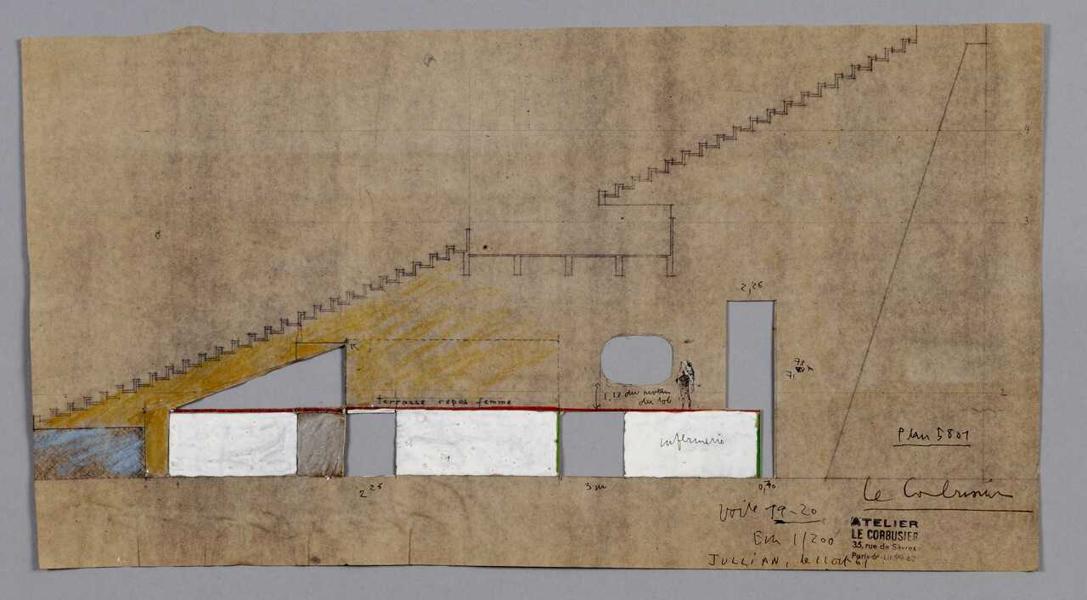 4
3
2,26
1,13 du
terrasse repos femme
2
infirmerie
Plan 5801
2 25
3 m
0,70
Le Corbusier
Voile 19-20
Ech 1/200
JULLIAN, le
ATELIER
LE CORBUSIER
35, rue de Sèvres
Paris